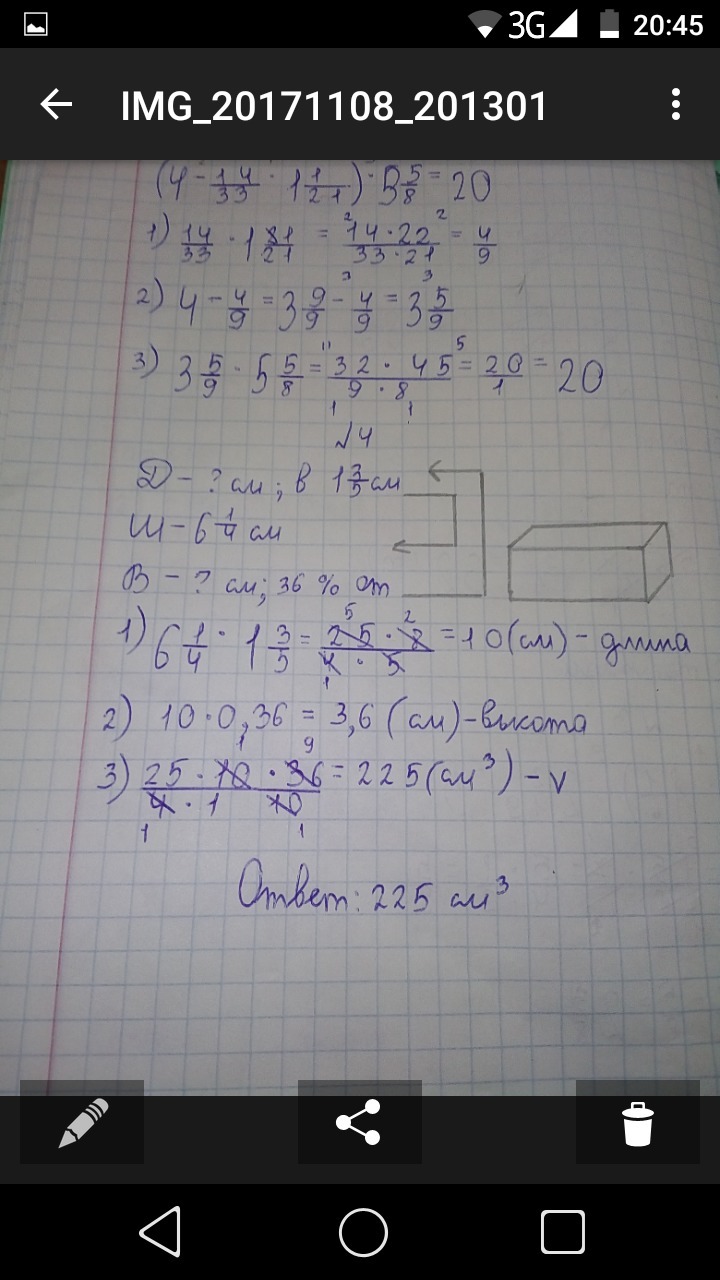 3G 20:45
IMG_20171108_201301
(4 - 14/33 · 1 1/21) · 5 5/8 = 20
1) 14/33 · 1 1/21 = 14·22/33·21 = 4/9
2) 4 - 4/9 = 3 9/9 - 4/9 = 3 5/9
3) 3 5/9 · 5 5/8 = 32 · 45/9 · 8 = 20/1 = 20
№4
Д - ? см ; в 1 3/5 см
Ш - 6 1/4 см
В - ? см; 36 % от
1) 6 1/4 · 1 3/5 = 25 · 8/4 · 5 = 10 (см) - длина
2) 10 · 0,36 = 3,6 (см) - высота
3) 25 · 10 · 36/4 · 1 10 = 225 (см³) - V
Ответ: 225 см³